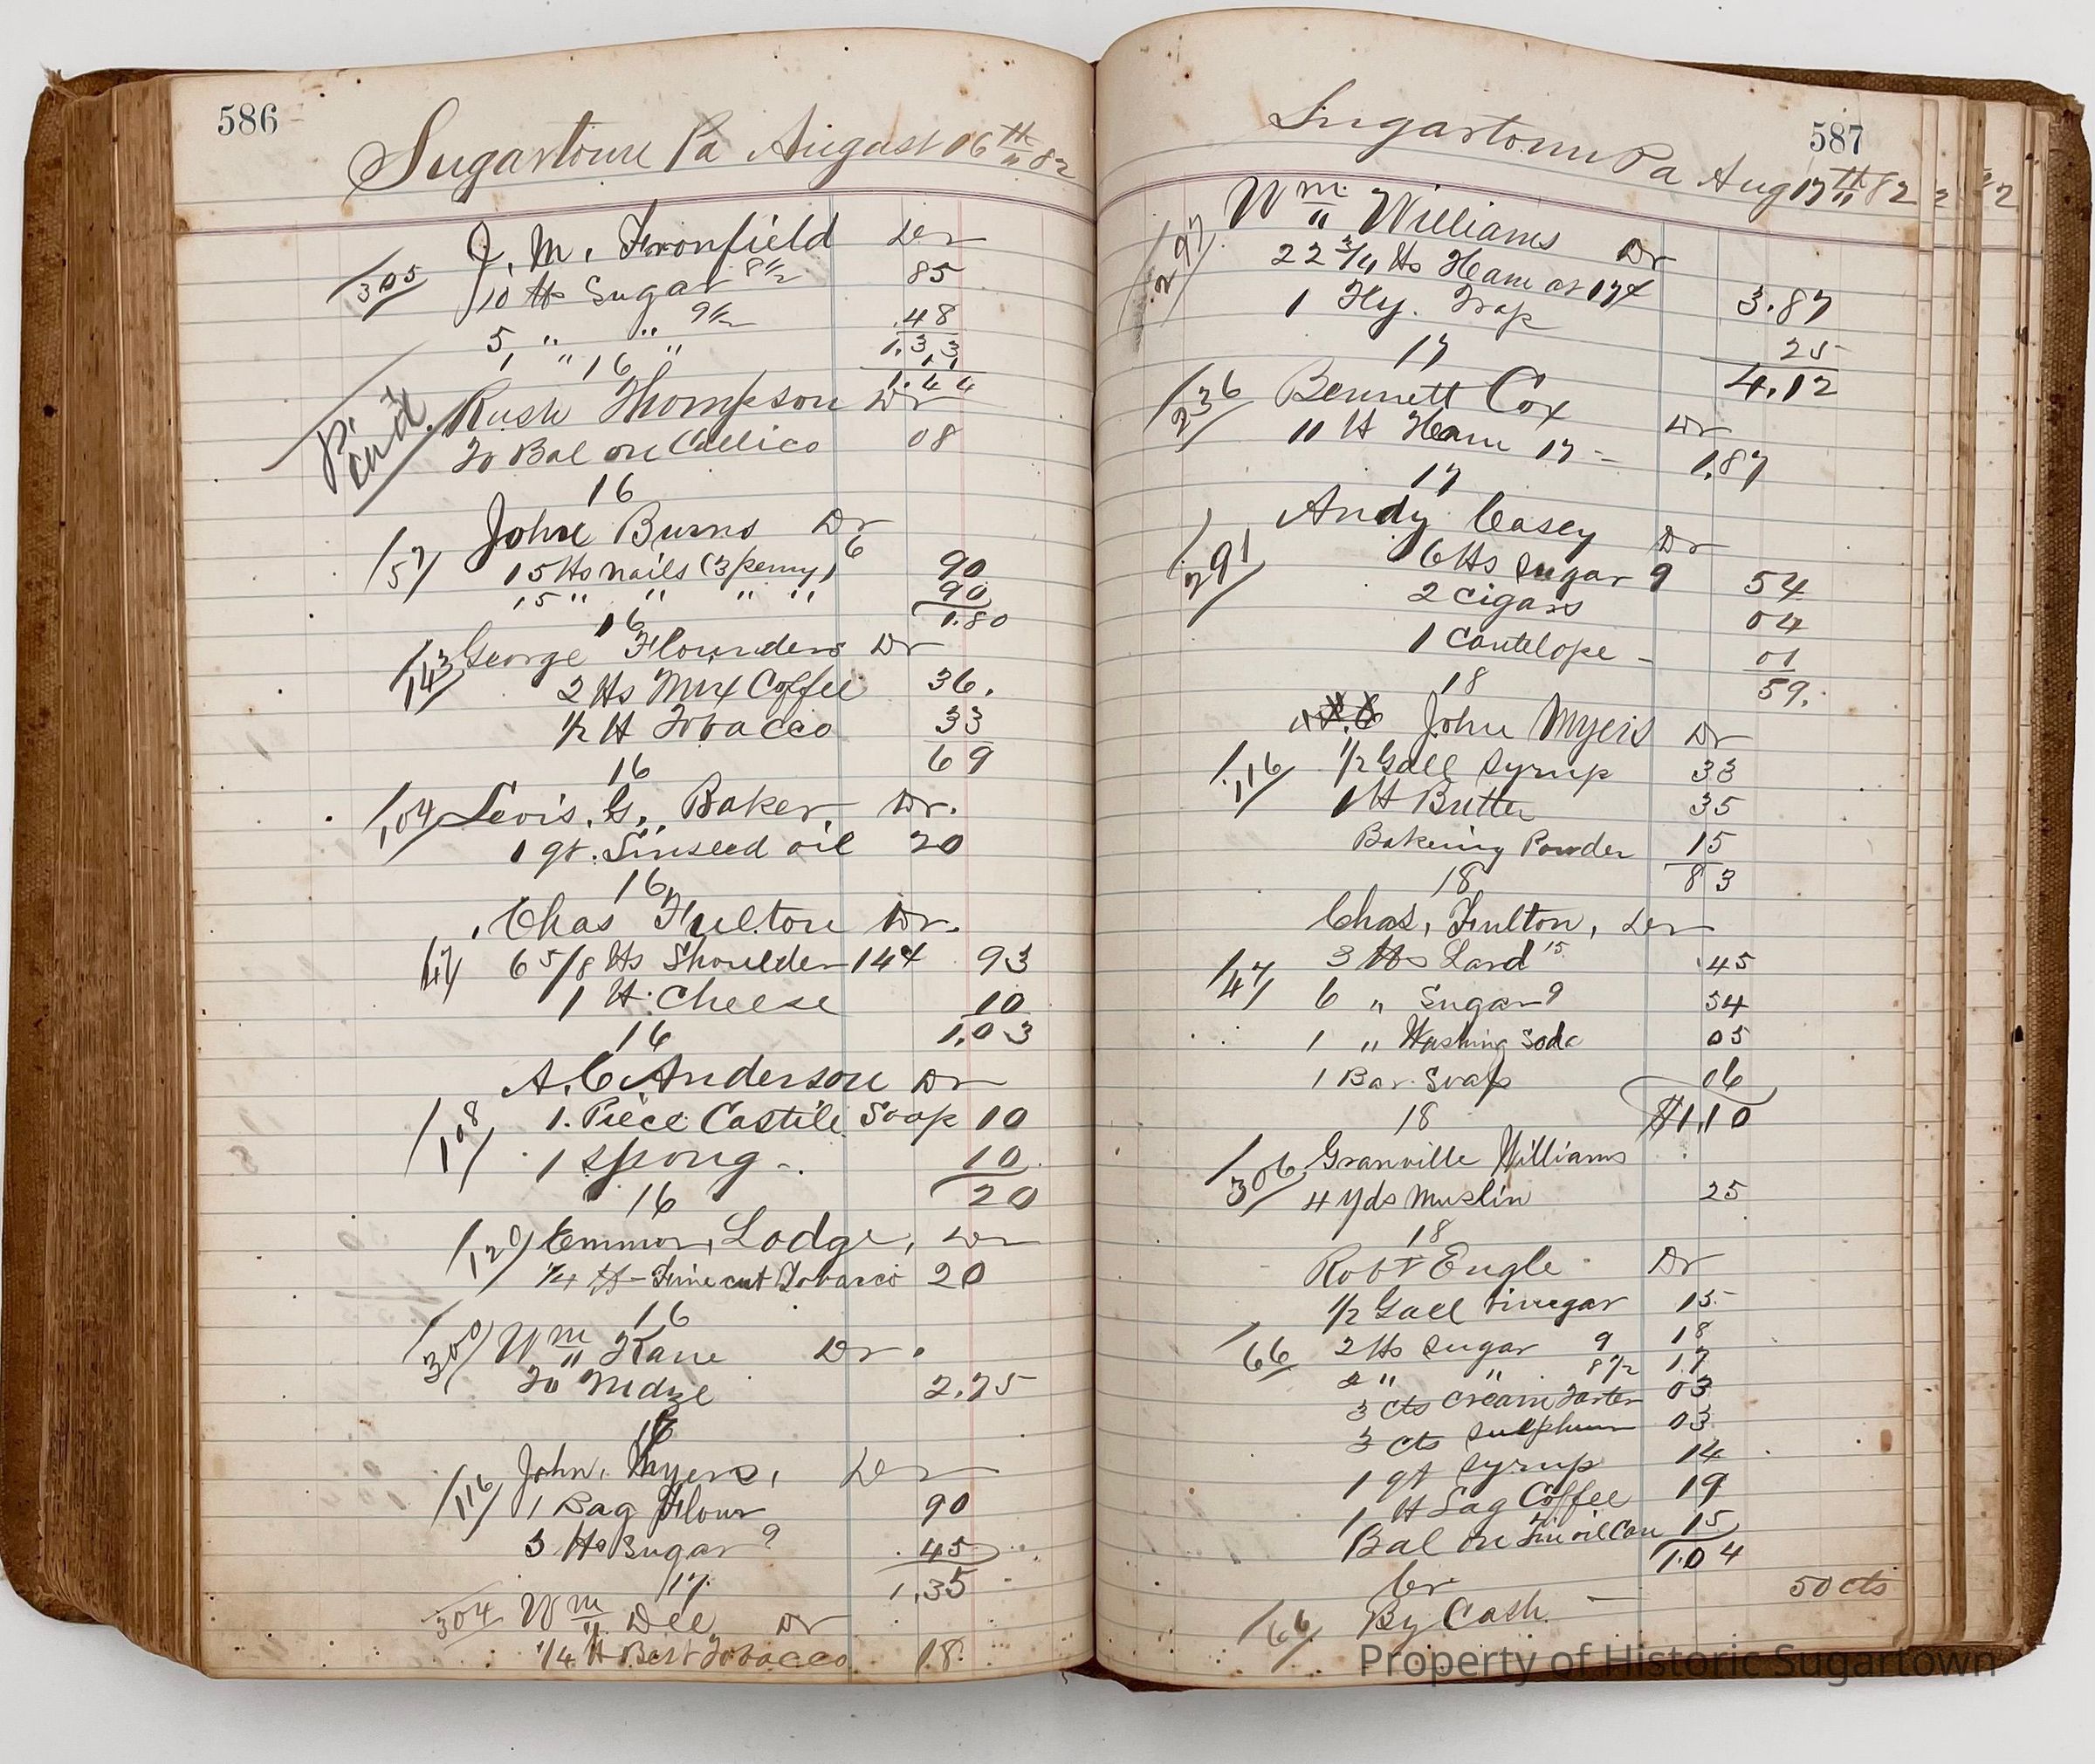 586
Sugartown Pa August 16th 82
J. M. Fronfield Dr
305
10 lbs Sugar 8½ 85
5 " " 9½ .48
1.33
1 " 16 " 11
1.44
Paid
Rush Thompson Dr
To Bal on Callico 08
16
John Burns Dr
57 15 lbs nails (3 penny) 6 90
15 " " " " 90
16 1.80
143 George Flounders Dr
2 lbs Mix Coffee 36.
½ lb Tobacco 33
16 69
104 Levis. G. Baker, Dr.
1 qt. Linseed oil 20
16
Chas Fulton Dr.
47 6 5/8 lbs Shoulder 14¢ 93
1 lb Cheese 10
16 1.03
A. C. Anderson Dr
108 1. Piece Castile Soap 10
1 Spong - 10
16 20
120 Emmor, Lodge, Dr
¼ lb - Fine cut Tobacco 20
16
300 Wm Kane Dr.
To Mdze 2.75
16
John, Myers, Dr
116 1 Bag Flour 90
5 lbs Sugar 9 .45
17 1.35
304 Wm Dee Dr
¼ lb Best Tobacco 18
587
Sugartown Pa Aug 17th 82
297 Wm Williams Dr
22 ¾ lbs Ham at 17¢ 3.87
1 Fly. Trap 25
17 4.12
236 Bennett Cox Dr
11 lb Ham 17 - 1.87
17
Andy Casey Dr
291 6 lbs Sugar 9 54
2 Cigars 04
1 Cantelope - 01
18 59.
John Myers Dr
116 ½ Gall Syrup 33
1 lb Butter 35
Bakeing Powder 15
18 83
Chas, Fulton, Dr
3 lbs Lard 15 .45
47 6 " Sugar 9 54
1 " Washing Soda 05
1 Bar. Soap 06
18 $1.10
306 Granville Williams
4 yds Muslin 25
18
Robt Engle Dr
½ Gall Vinegar 15
66 2 lbs Sugar 9 18
2 " " 8½ 17
3 cts Cream Tarter 03
3 cts Sulphur 03
1 qt Syrup 14
1 lb Lag Coffee 19
Bal on Tin oil Can 15
1.04
Cr
66 By Cash - 50 cts
Property of Historic Sugartown